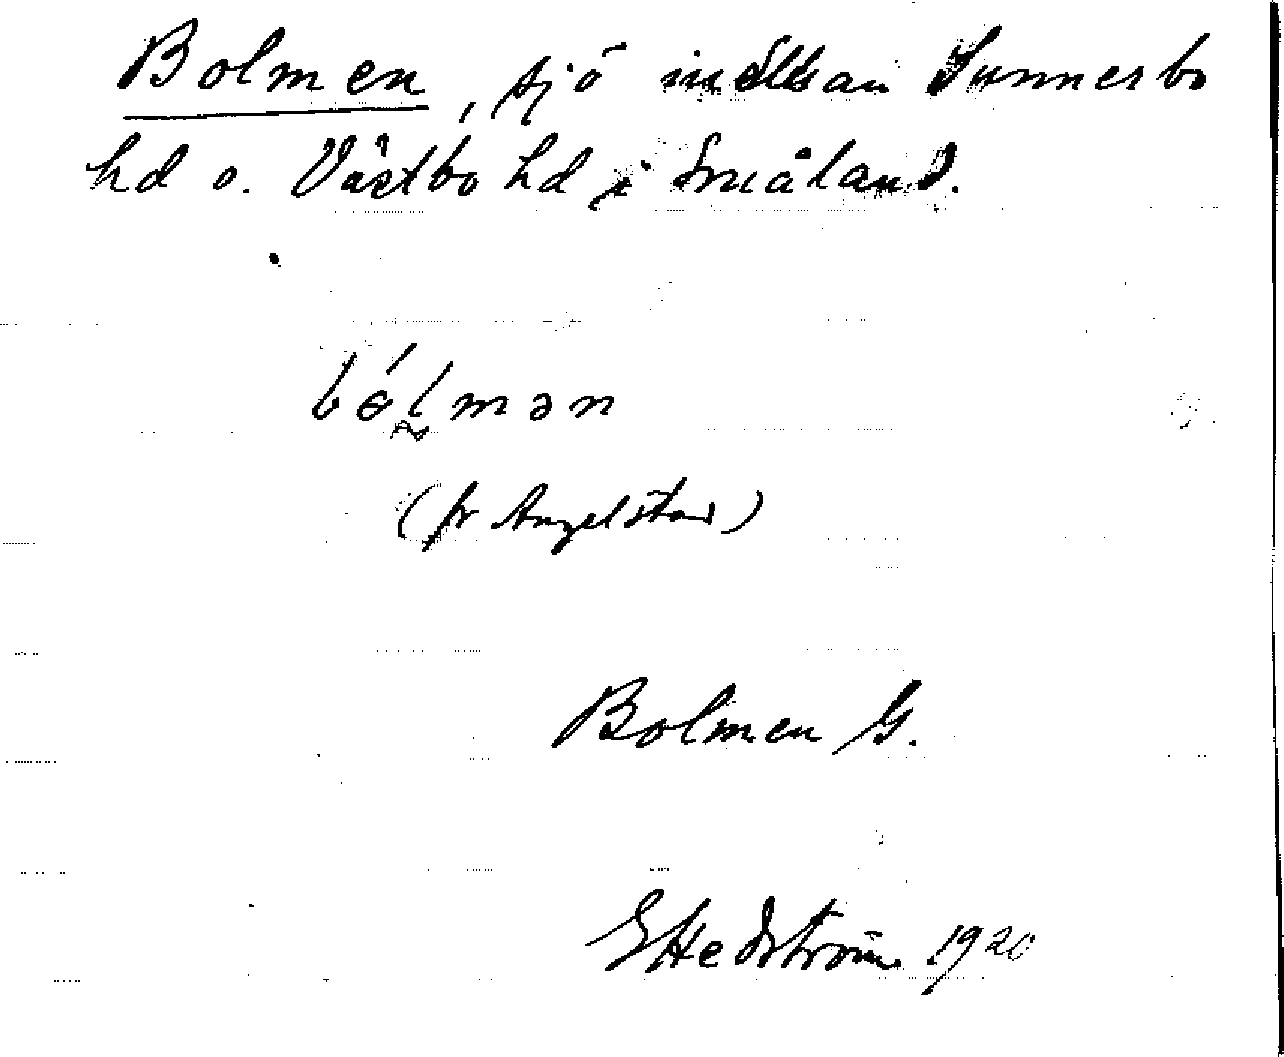 Bolmen, sjö mellan Sunnerbo
hd o. Västbo hd i Småland.
bɵ́lmən
(fr Angelstad)
Bolmen G.
E Hedström 1920